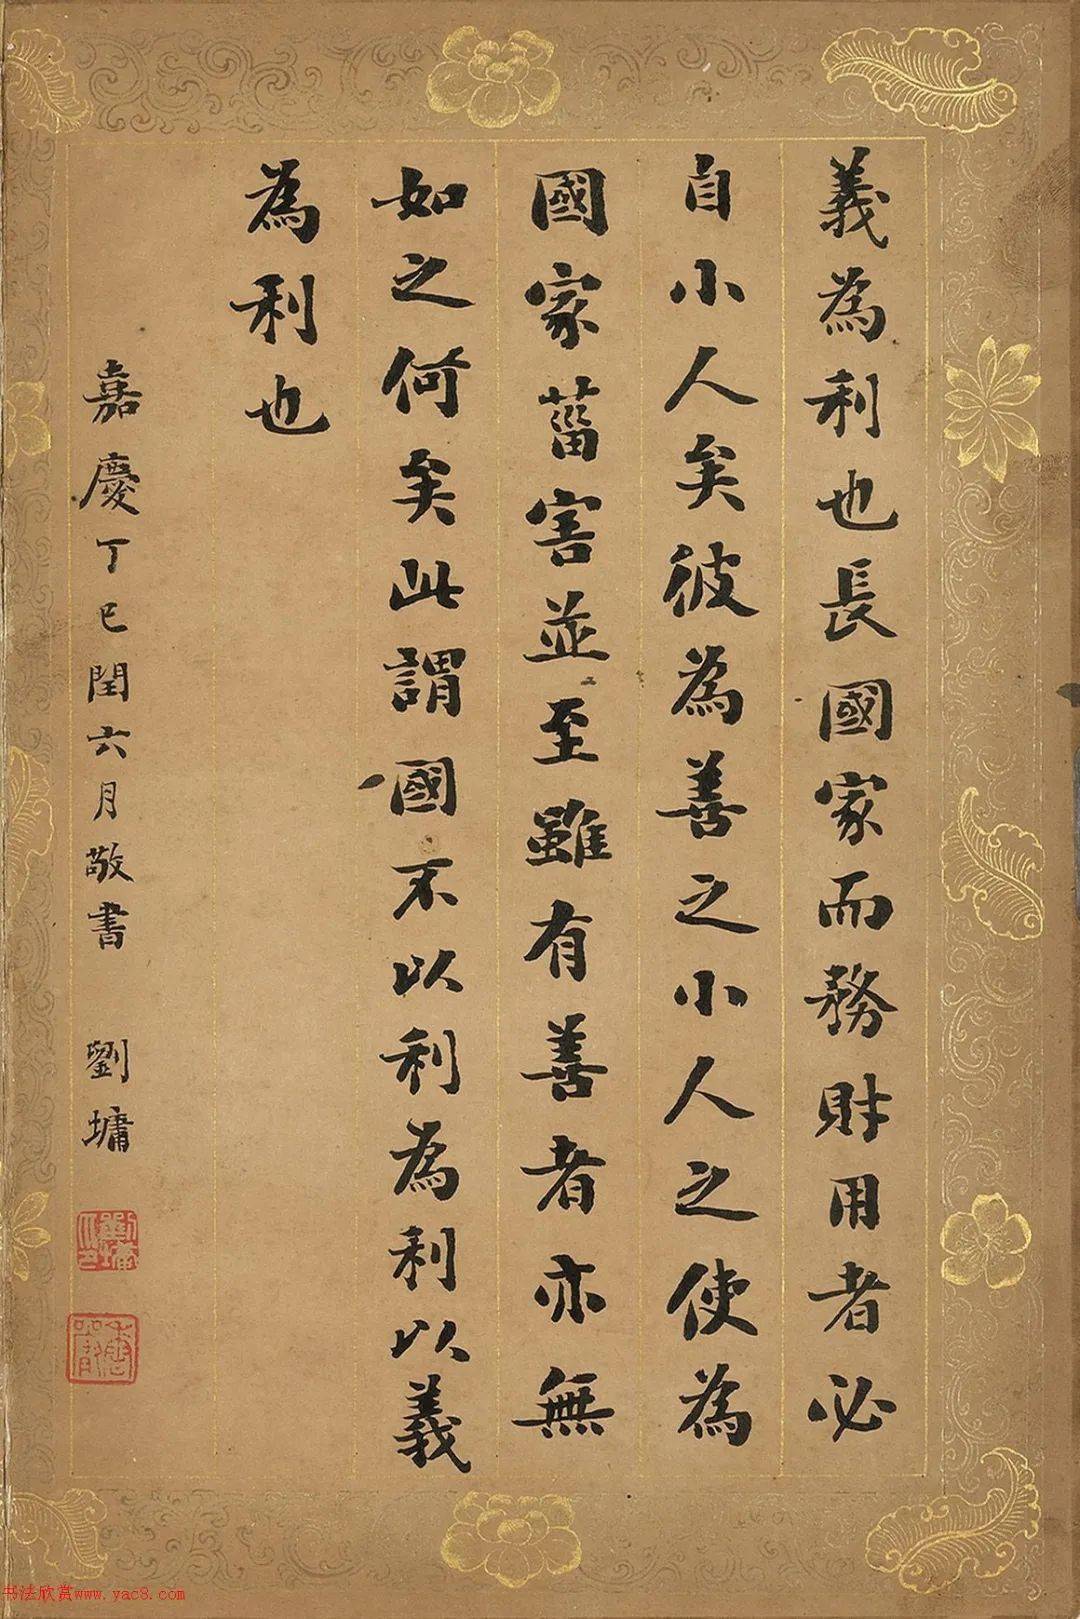 義為利也長國家而務財用者必
自小人矣彼為善之小人之使為
國家菑害並至雖有善者亦無
如之何矣此謂國不以利為利以義
為利也
嘉慶丁巳閏六月敬書 劉墉
劉墉
書法欣赏www.yac8.com